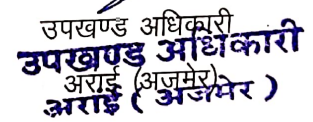 उपखण्ड अधिकारी
उपखण्ड अधिकारी
अराई (अजमेर)
अराई ( अजमेर )